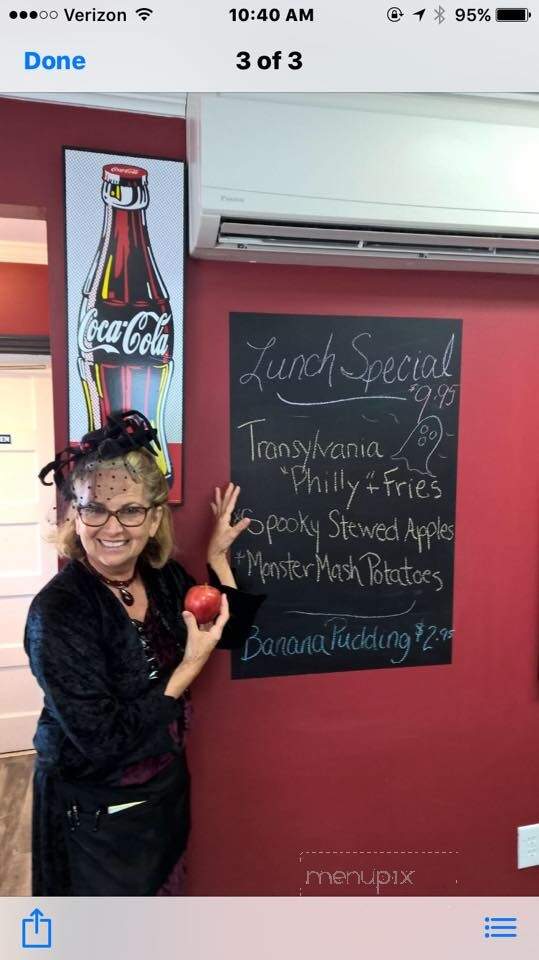 ●●●○○ Verizon 10:40 AM 95%
Done 3 of 3
Coca-Cola
Coca-Cola
Lunch Special
$9.95
Transylvania
"Philly" + Fries
Spooky Stewed Apples
+ Monster Mash Potatoes
Banana Pudding $2.95
menupix